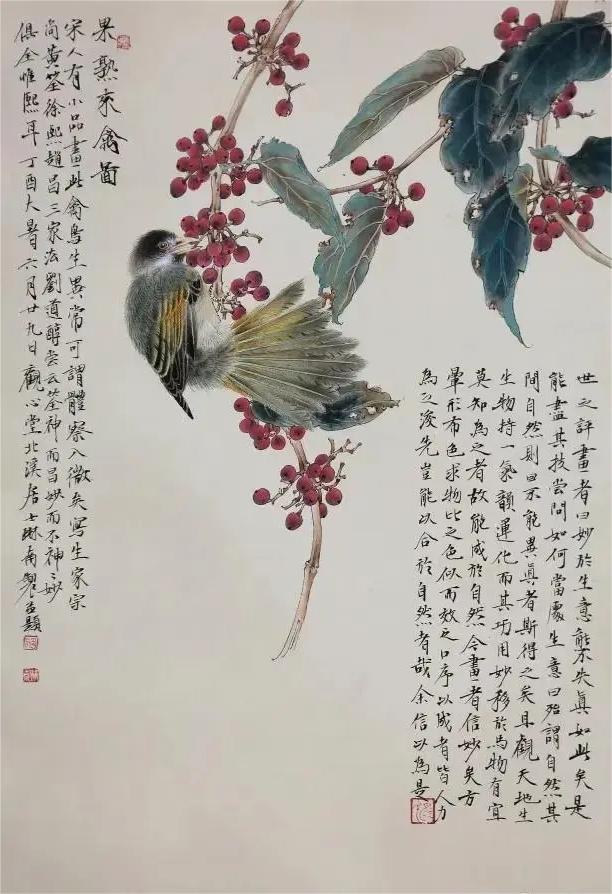 果熟來禽圖
宋人有小品畫此禽鳥生異常可謂體察入微矣寫生家宗
尚黃筌徐熙趙昌三家法劉道醇嘗云筌神而昌妙而不神〻妙
俱全惟熙耳丁酉大暑六月廿九日觀心堂北溪居士琳南製並題
世之評畫者曰妙於生意能不失真如此矣是
能盡其技嘗問如何當處生意曰殆謂自然其
間自然則曰不能異真者斯得之矣且觀天地生
生物持一氣韻運化而其巧用妙移於為物有宜
莫知為之者故能成於自然今畫者信妙矣方
暈形布色求物比之色似而效之口序以成者皆人力
為之浚先豈能以合於自然者哉余信以為是